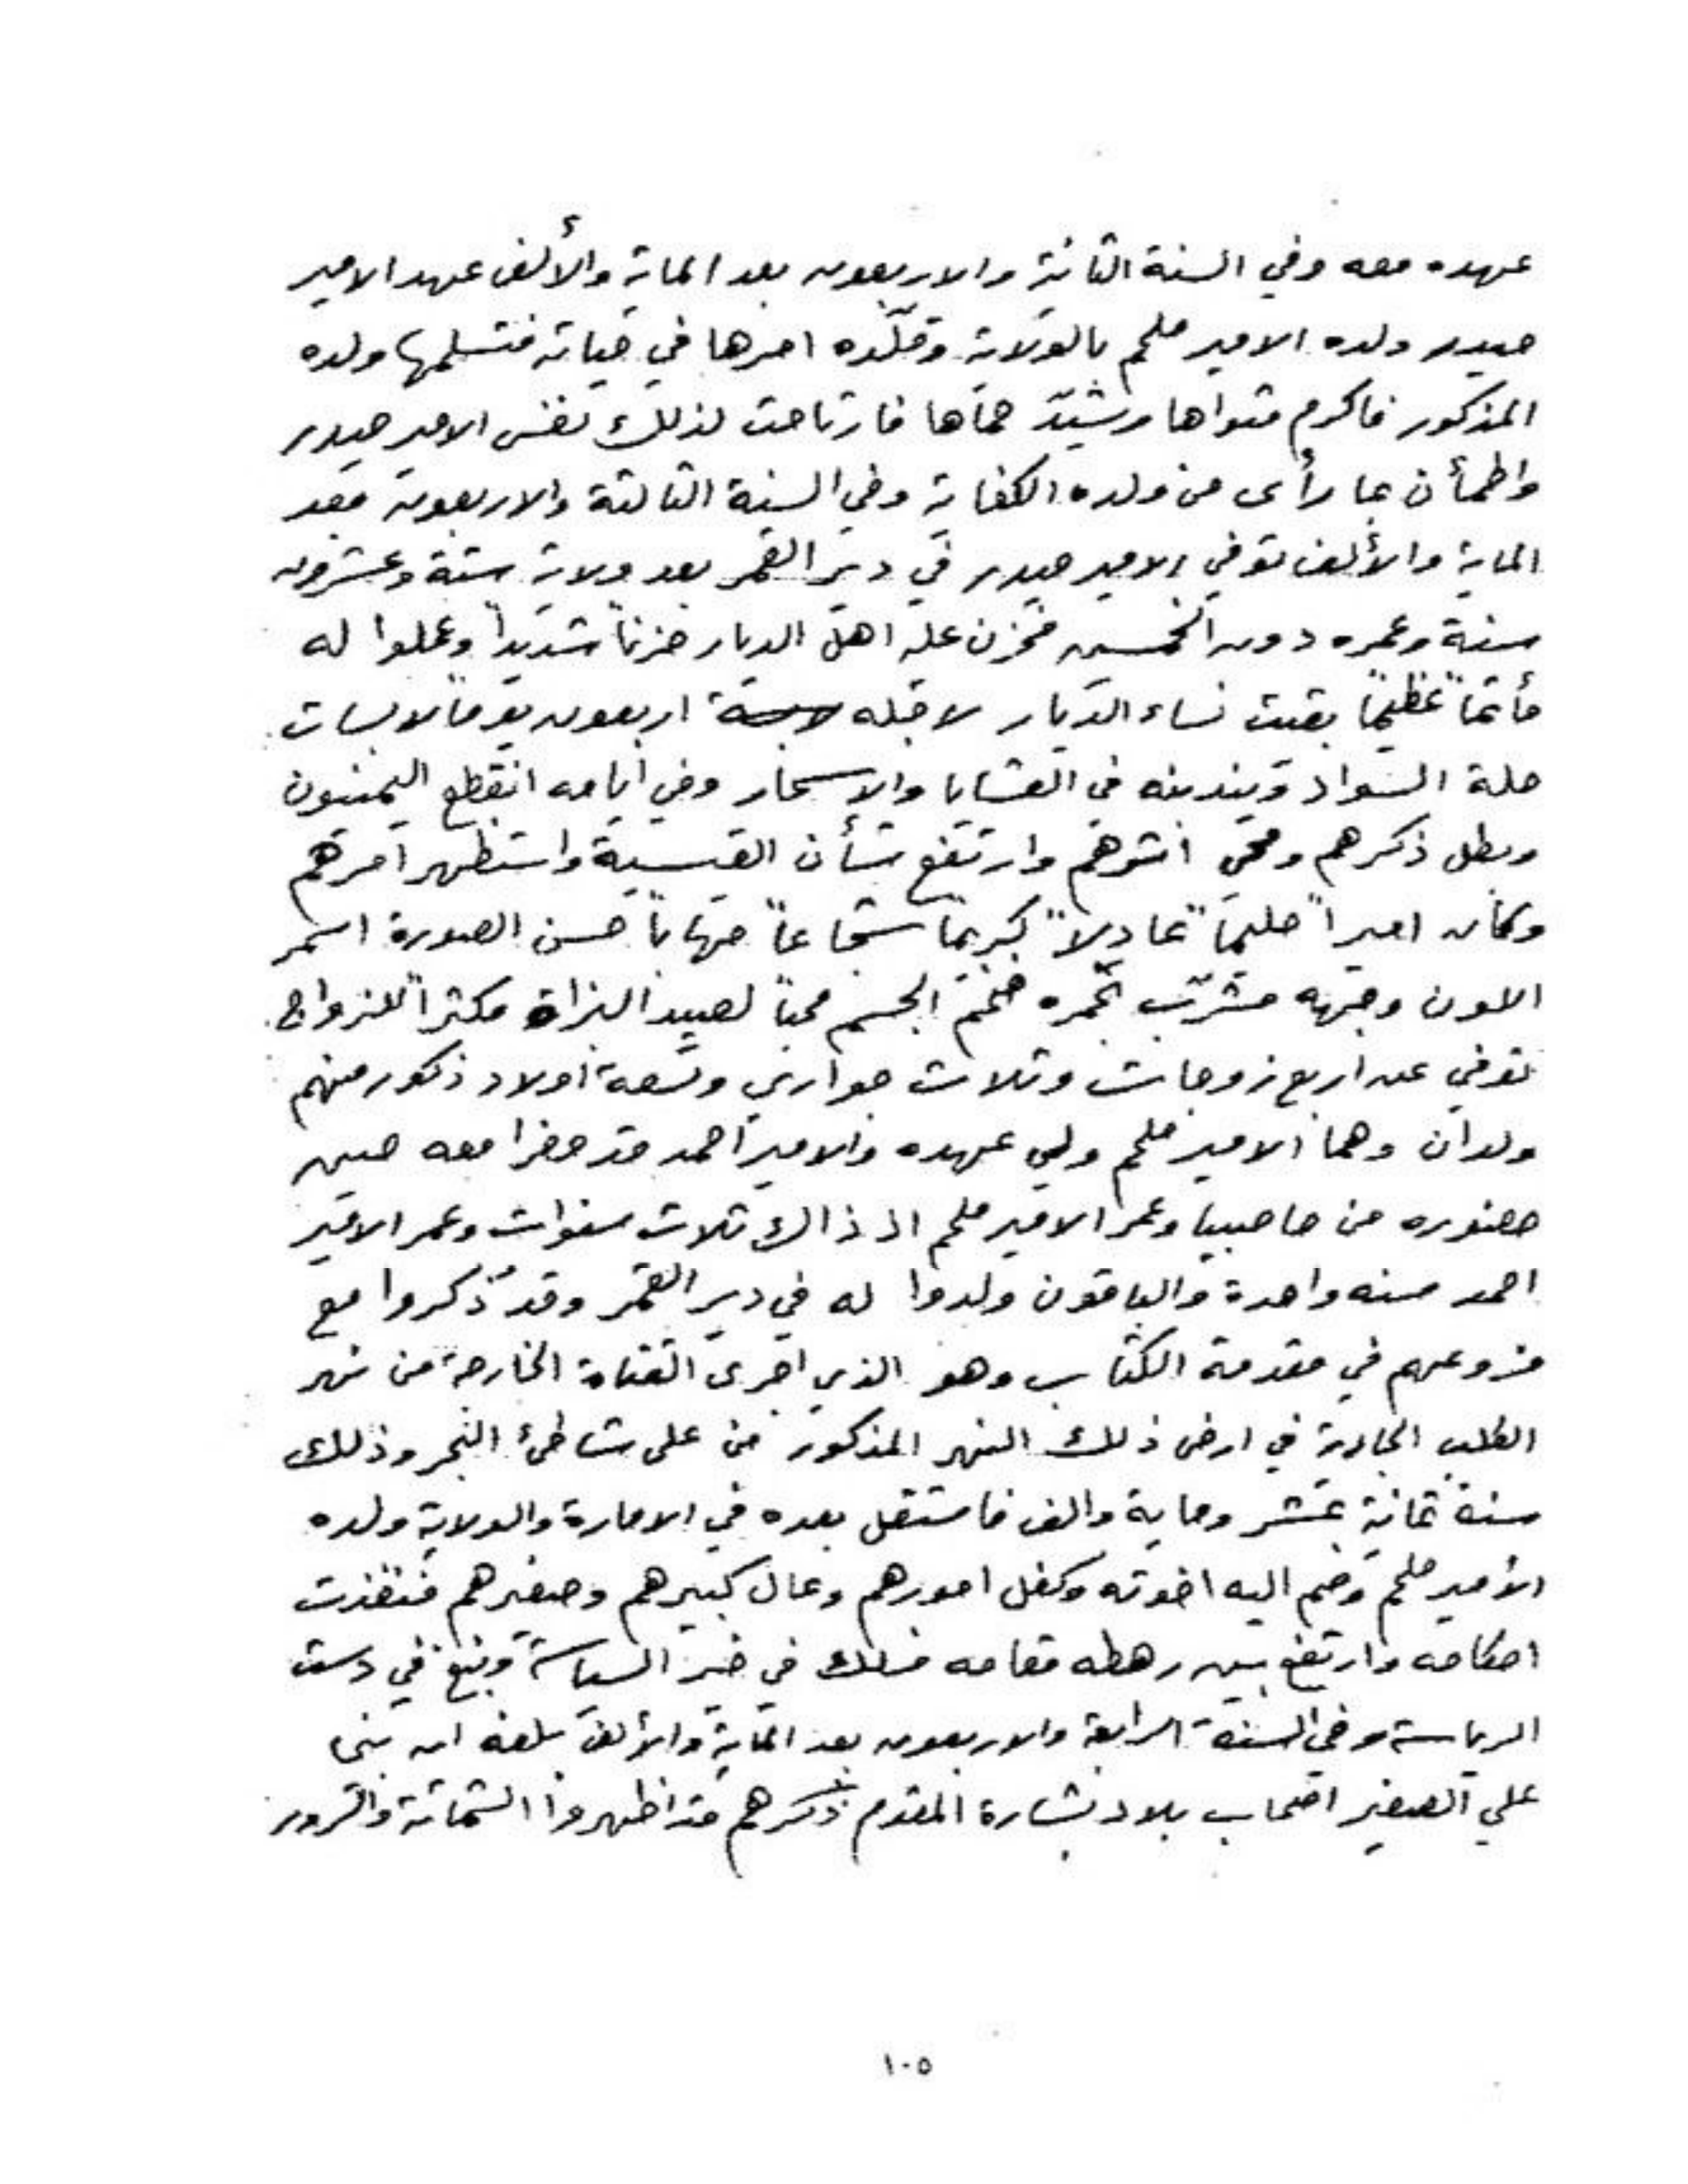 عهده معه وفي السنة الثانية والاربعون بعد الماية والألف عهد الامير
حيدر ولده الامير ملحم بالولاية وقلّده امرها في حياته فتسلمها ولده
المذكور فاكرم مثواها وشيّد حماها فارتاحت لذلك نفس الامير حيدر
واطمأن بما رأى من ولده الكفاية وفي السنة الثالثة والاربعون بعد
الماية والألف توفي الامير حيدر في دير القمر بعد ولاية ستة وعشرون
سنة وعمره دون الخمسين فحزن عليه اهل الديار حزناً شديداً وعملوا له
مأتماً عظيماً بقيت نساء الديار لاجله اربعون يوماً لابسات
حلة السواد ويندبنه في العشايا والاسحار وفي ايامه انقطع اليمنيون
وبطل ذكرهم ومحي اثرهم وارتفع شأن القيسية واستظهر امرهم
وكان اميراً حليماً عادلاً كريماً شجاعاً مهاباً حسن الصورة اسمر
اللون وجهه مشرّب بحمره ضخم الجسم محباً لصيد البزاة مكثراً للزواج
توفي عن اربع زوجات وثلاث جواري وتسعة اولاد ذكور منهم
ولدان وهما الامير ملحم ولي عهده والامير احمد قد حضرا معه حين
حضوره من حاصبيا وعمر الامير ملحم اذ ذاك ثلاث سنوات وعمر الامير
احمد سنه واحدة والباقون ولدوا له في دير القمر وقد ذكروا مع
فروعهم في مقدمة الكتاب وهو الذي اجرى القناة الخارجة من نهر
الكلب الجارية في ارض ذلك النهر المذكور من على شاطئ البحر وذلك
سنة ثمانية عشر وماية والف فاستقل بعده في الامارة والولاية ولده
الأمير ملحم وضم اليه اخوته وكفل امورهم وعال كبيرهم وصغيرهم فنفذت
احكامه وارتفع بين رهطه مقامه فسلك في خير السياسة ونبغ في دست
الرياسة وفي السنة الرابعة والاربعون بعد الماية والألف بلغه ان بني
علي الصغير اصحاب بلاد بشارة المقدم ذكرهم قد اظهروا الشماتة والسرور
١٠٥